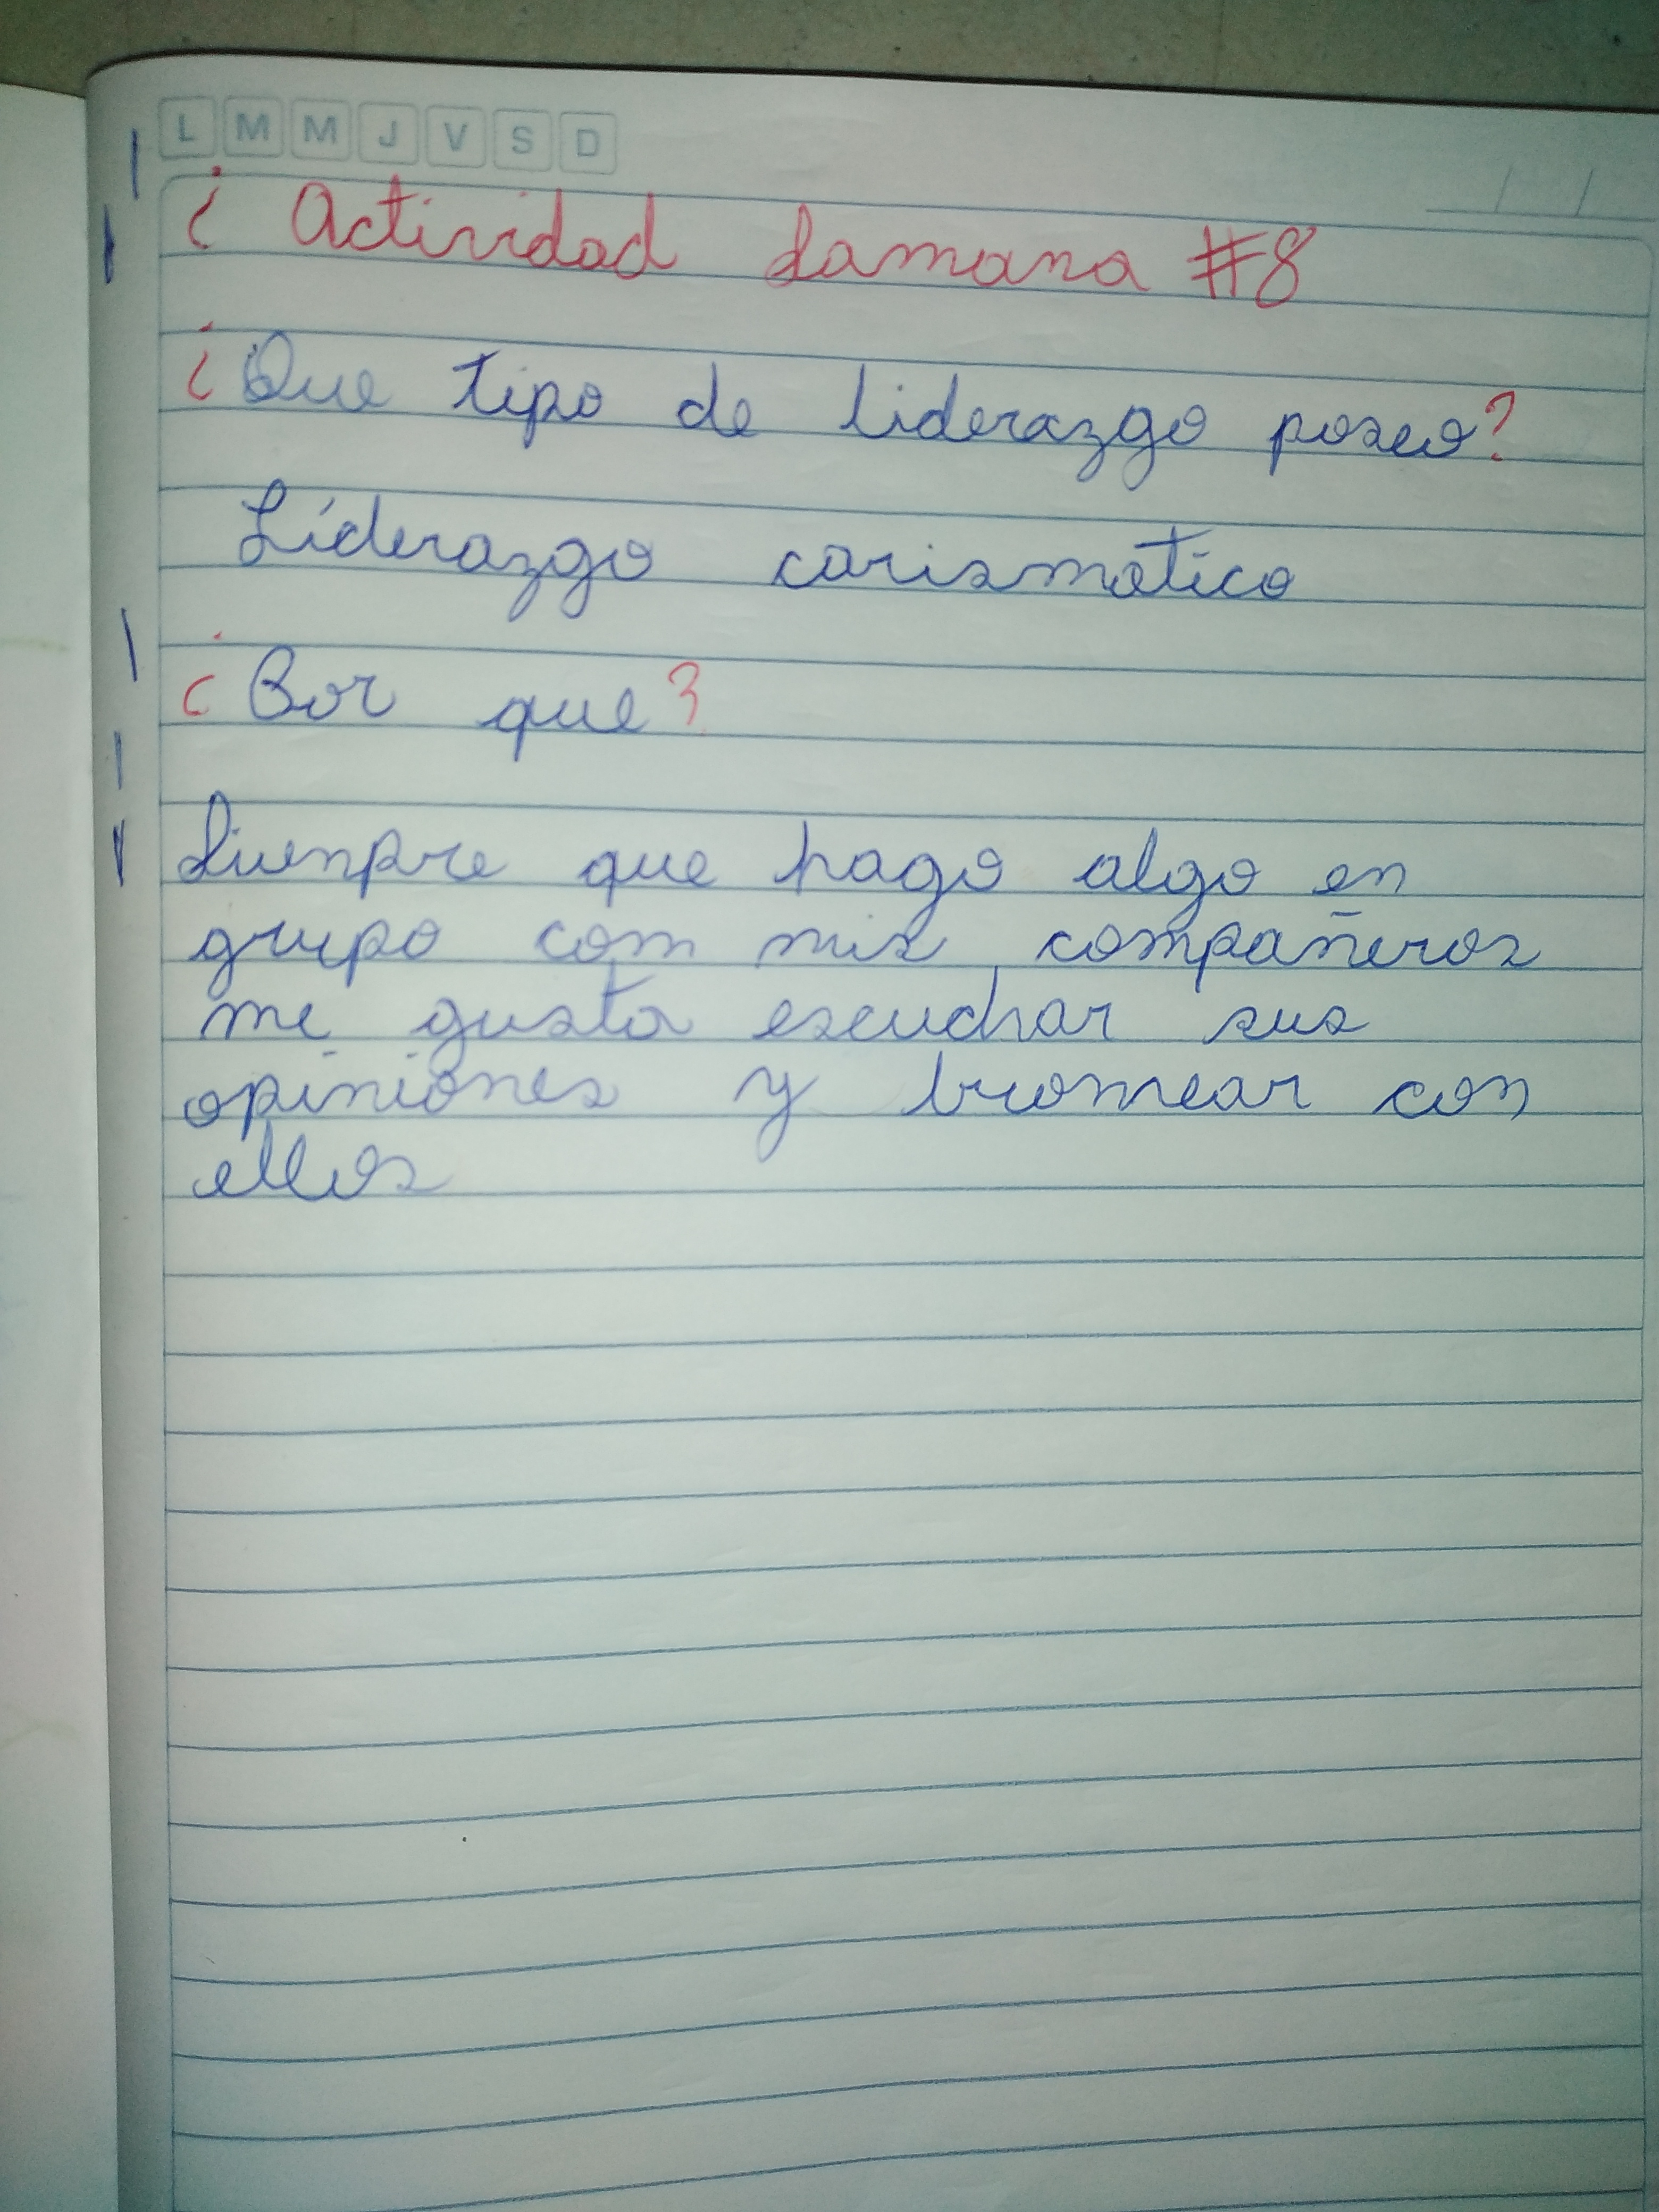 L M M J V S D
¿ Actividad Samana #8
¿Que tipo de liderazgo poseo?
Líderazgo carismatico
¿Por que?
Sienpre que hago algo en
grupo com mis compañeros
me gusta escuchar sus
opiniones y bromear con
ellos